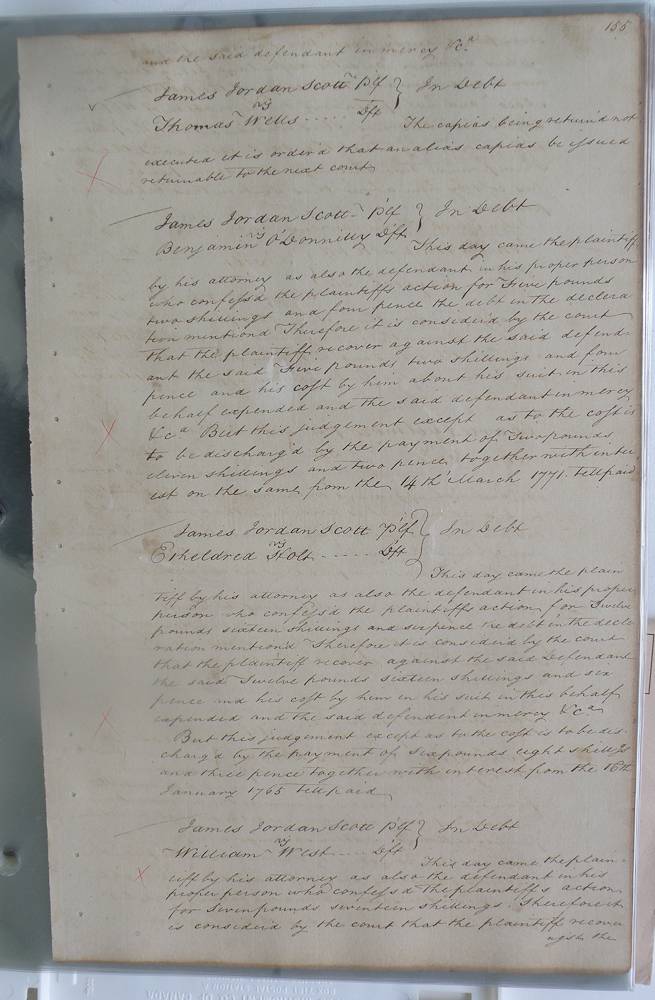 155
and the said defendant in mercy &cª
James Jordan Scott Plf } In Debt
vs
Thomas Wells ..... Dft
The capias being returnd not
executed it is order'd that an alias capias be issued
returnable to the next court
James Jordan Scott Plf } In Debt
vs
Benjamin O'Donnilly Dft
This day came the plaintiff
by his attorney as also the defendant in his proper person
who confess'd the plaintiffs action for Five pounds
two shillings and four pence the debt in the declera
tion mention'd Therefore it is consider'd by the court
that the plaintiff recover against the said defend-
ant the said Five pounds two shillings and four
pence and his cost by him about his suit in this
behalf expended and the said defendant in mercy
&cª But this judgement except as to the cost is
to be discharg'd by the payment of Two pounds
eleven shillings and two pence together with inter
est on the same from the 14th March 1771. till paid
James Jordan Scott Plf } In Debt
vs
Etheldred Holt ..... Dft
This day came the plain
tiff by his attorney as also the defendant in his proper
person who confess'd the plaintiffs action for Twelve
pounds sixteen shillings and sixpence the debt in the decle
ration mention'd Therefore it is consider'd by the court
that the plaintiff recover against the said Defendant
the said Twelve pounds sixteen shillings and six
pence and his cost by him in his suit in this behalf
expended and the said defendant in mercy &cª
But this judgement except as to the cost is to be dis-
charg'd by the payment of six pounds eight shill'gs
and three pence together with interest from the 16th
January 1765 till paid
James Jordan Scott Plf } In Debt
vs
William West .... Dft
This day came the plain-
tiff by his attorney as also the defendant in his
proper person who confess'd the plaintiffs action
for Seven pounds seventeen shillings. Therefore it
is consider'd by the court that the plaintiff recover
the